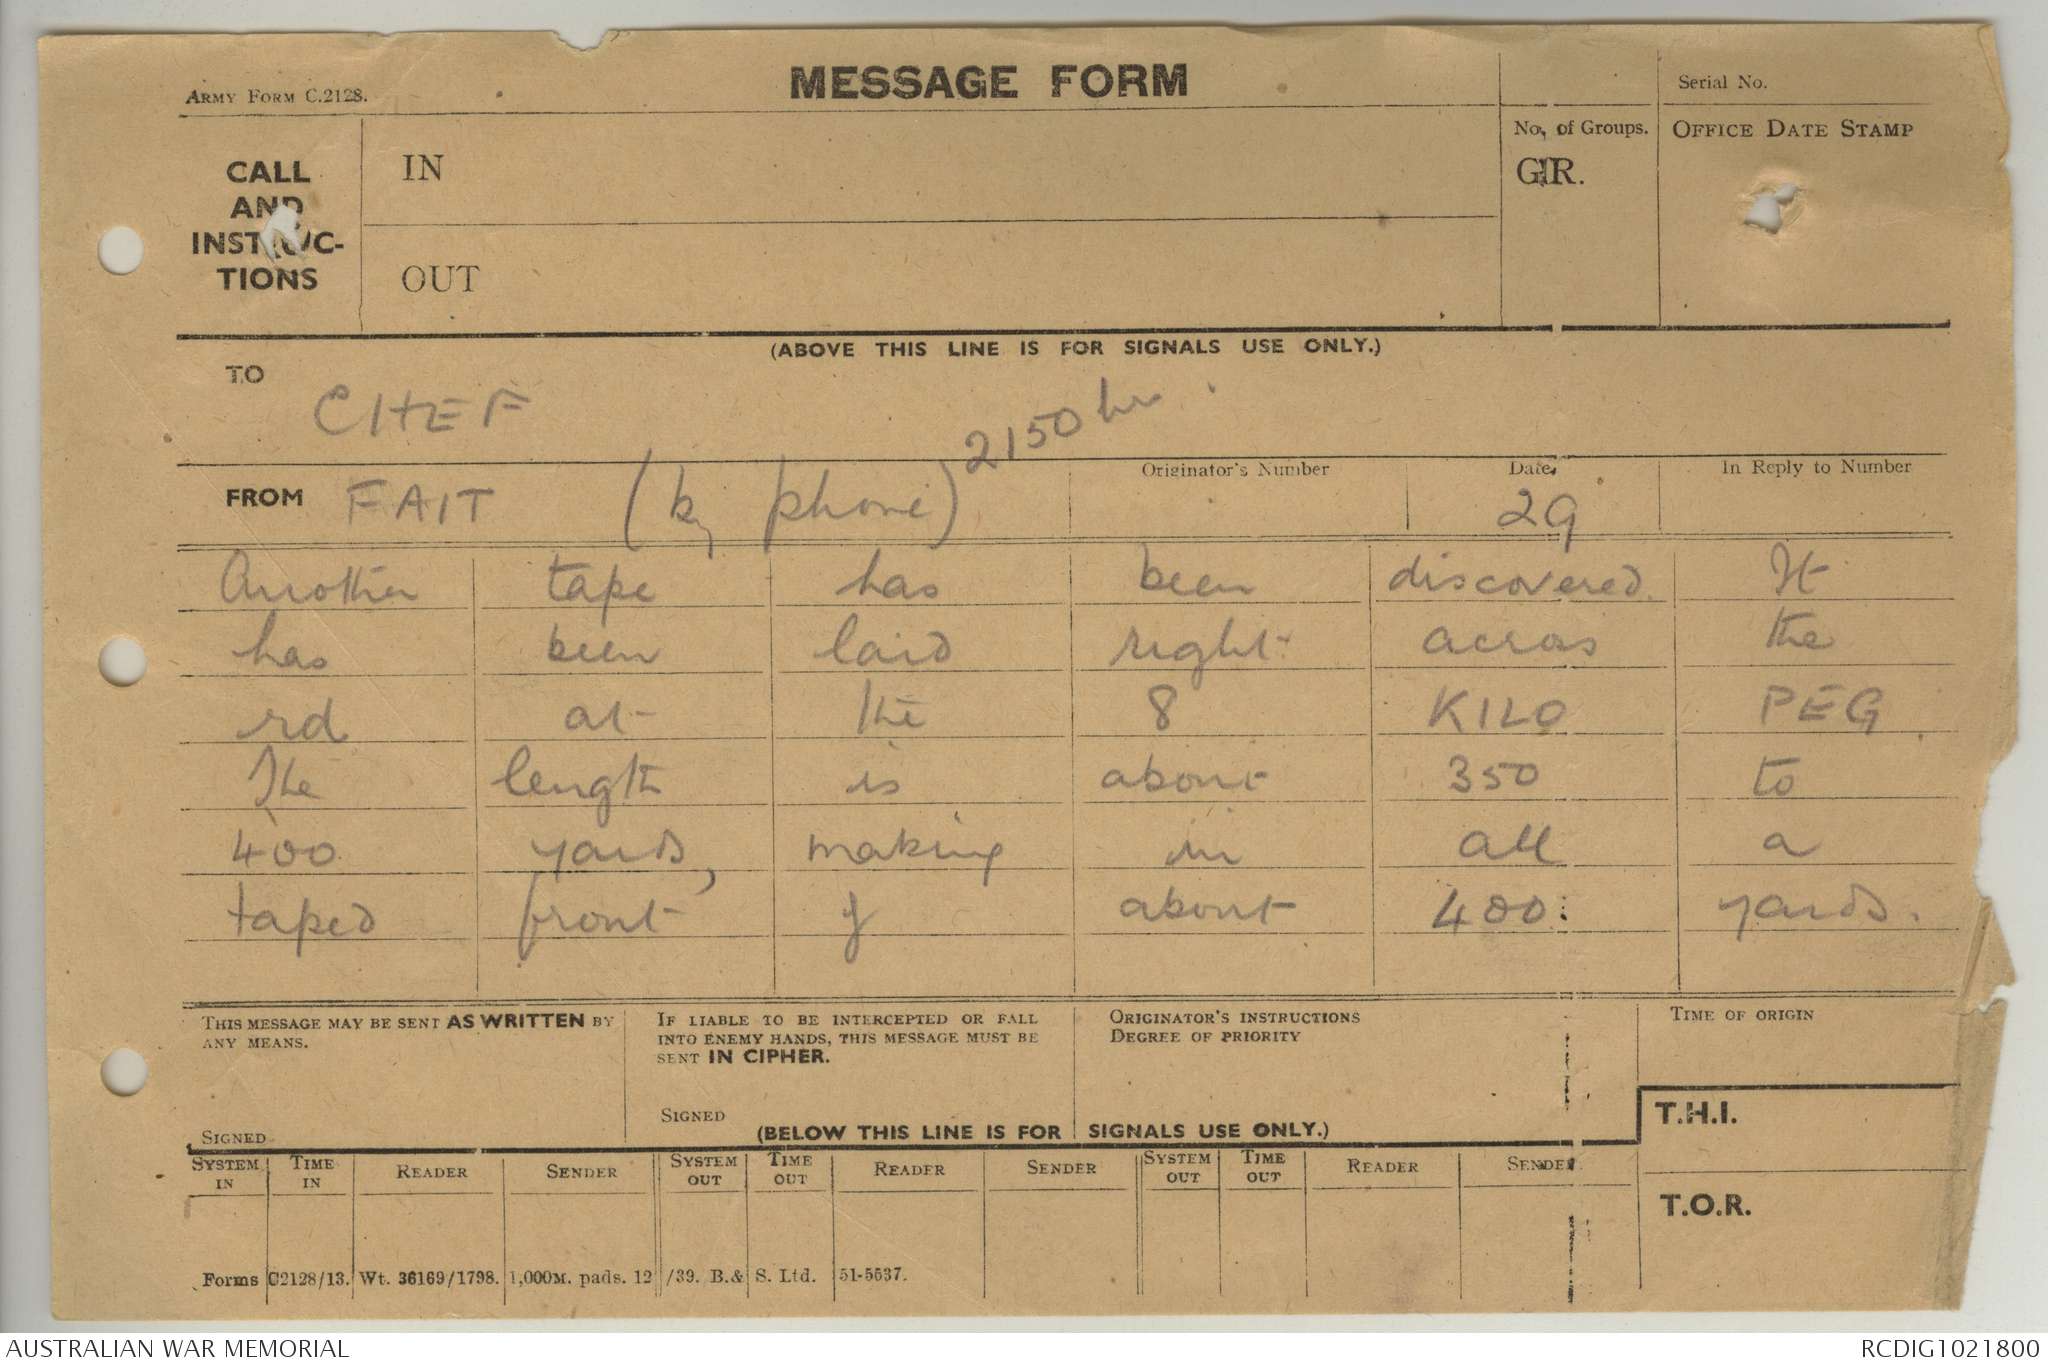 MESSAGE FORM
ARMY FORM C.2128.
Serial No.
CALL AND INSTRUC-TIONS
IN
OUT
No. of Groups.
GR.
OFFICE DATE STAMP
(ABOVE THIS LINE IS FOR SIGNALS USE ONLY.)
TO
CHEF
2150 hr.
FROM FAIT (by phone)
Originator's Number
Date
29
In Reply to Number
Another tape has been discovered. It
has been laid right across the
rd at the 8 KILO PEG
The length is about 350 to
400 yards, making in all a
taped front of about 400 yards.
THIS MESSAGE MAY BE SENT AS WRITTEN BY
ANY MEANS.
SIGNED
IF LIABLE TO BE INTERCEPTED OR FALL
INTO ENEMY HANDS, THIS MESSAGE MUST BE
SENT IN CIPHER.
SIGNED
ORIGINATOR'S INSTRUCTIONS
DEGREE OF PRIORITY
TIME OF ORIGIN
(BELOW THIS LINE IS FOR SIGNALS USE ONLY.)
T.H.I.
SYSTEM IN TIME IN READER SENDER SYSTEM OUT TIME OUT READER SENDER SYSTEM OUT TIME OUT READER SENDER
T.O.R.
Forms C2128/13. Wt. 36169/1798. 1,000M. pads. 12/39. B.& S. Ltd. 51-5537.
AUSTRALIAN WAR MEMORIAL
RCDIG1021800